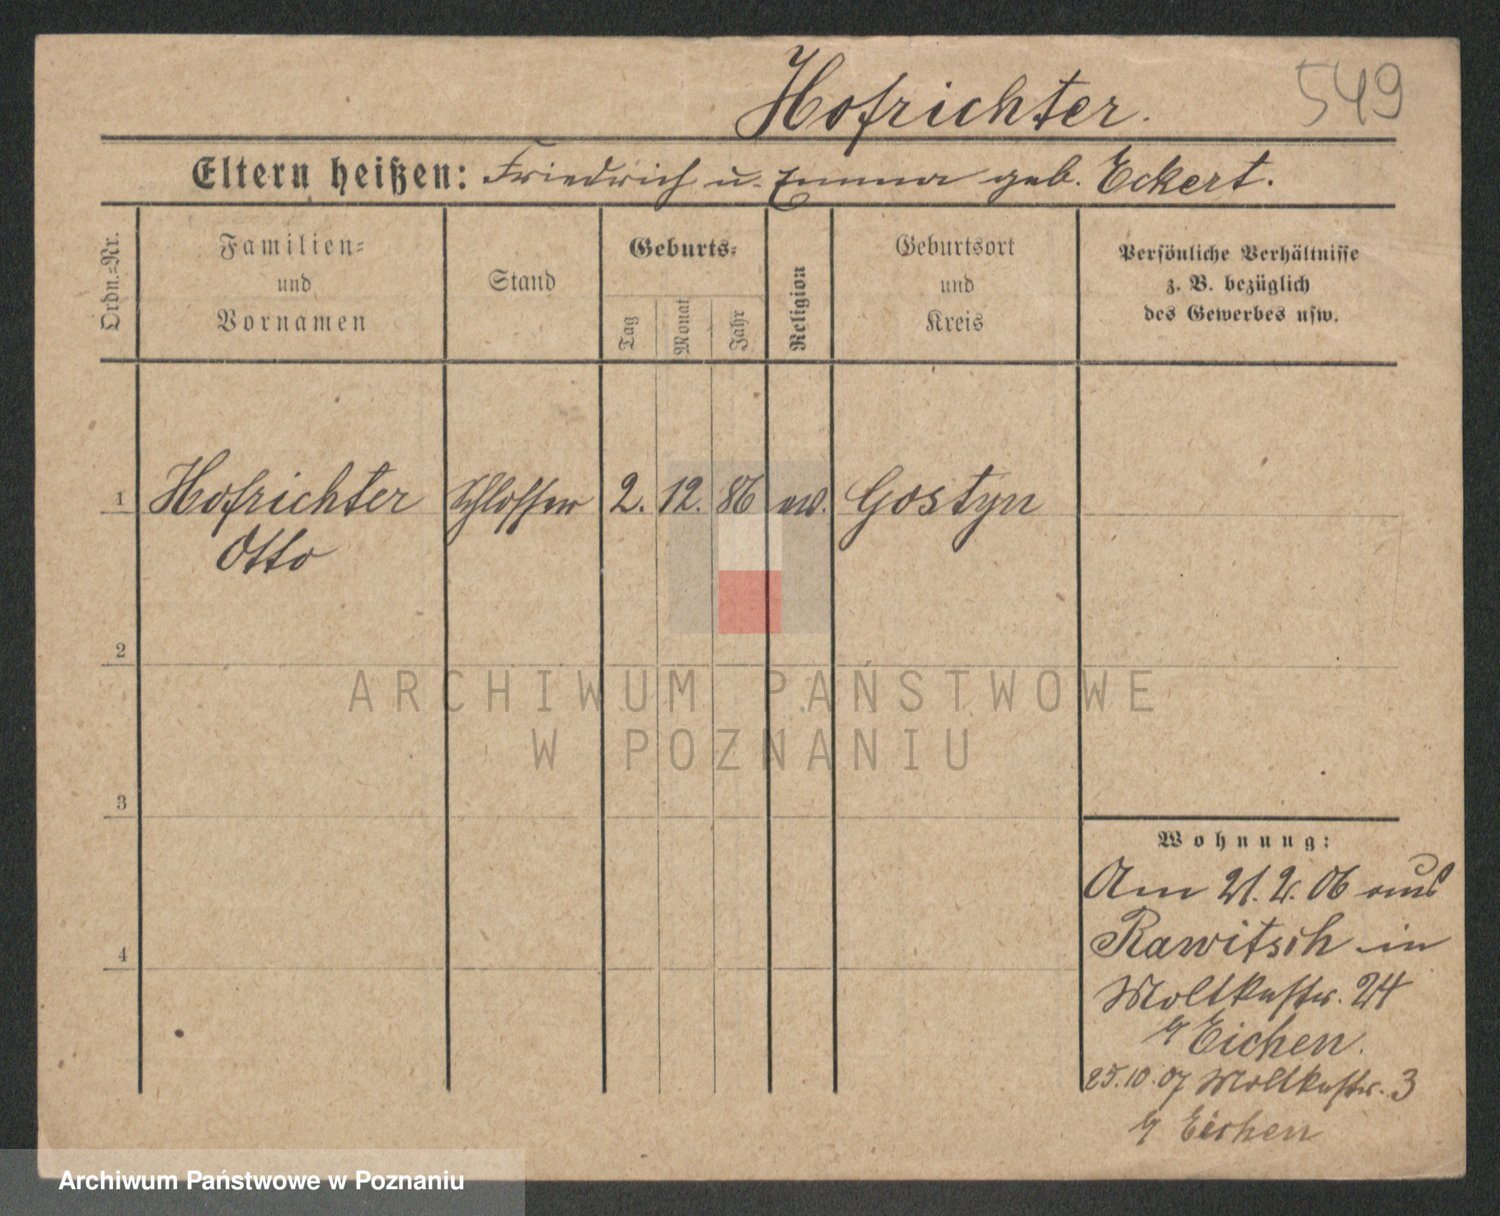 549
Hofrichter.
Eltern heißen: Friedrich u. Emma geb. Eckert.
Ordn.-Nr.
Familien-
und
Vornamen
Stand
Geburts-
Tag
Monat
Jahr
Religion
Geburtsort
und
Kreis
Persönliche Verhältnisse
z. B. bezüglich
des Gewerbes usw.
1 Hofrichter Schlosser 2. 12. 86 ev. Gostyn
Otto
2
3
4
Wohnung:
Am 21. 2. 06 aus
Rawitsch in
Moltkestr. 24
Eichen.
25.10.07 Moltkestr. 3
Eichen
ARCHIWUM PAŃSTWOWE
W POZNANIU
Archiwum Państwowe w Poznaniu